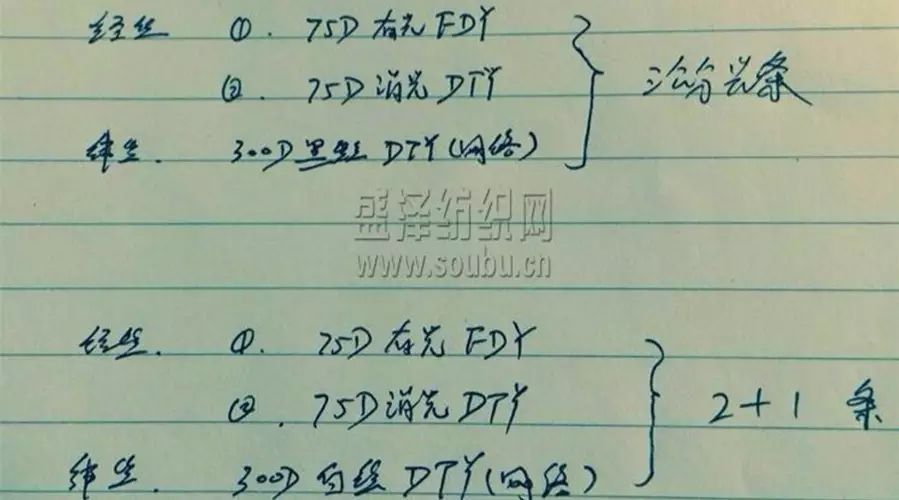 经丝 ①. 75D 有光 FDY
②. 75D 消光 DTY
纬丝. 300D 黑丝 DTY (网络)
条
盛泽纺织网
www.soubu.cn
经丝. ①. 75D 有光 FDY
②. 75D 消光 DTY
2+1 条
纬丝. 300D 白丝 DTY (网络)